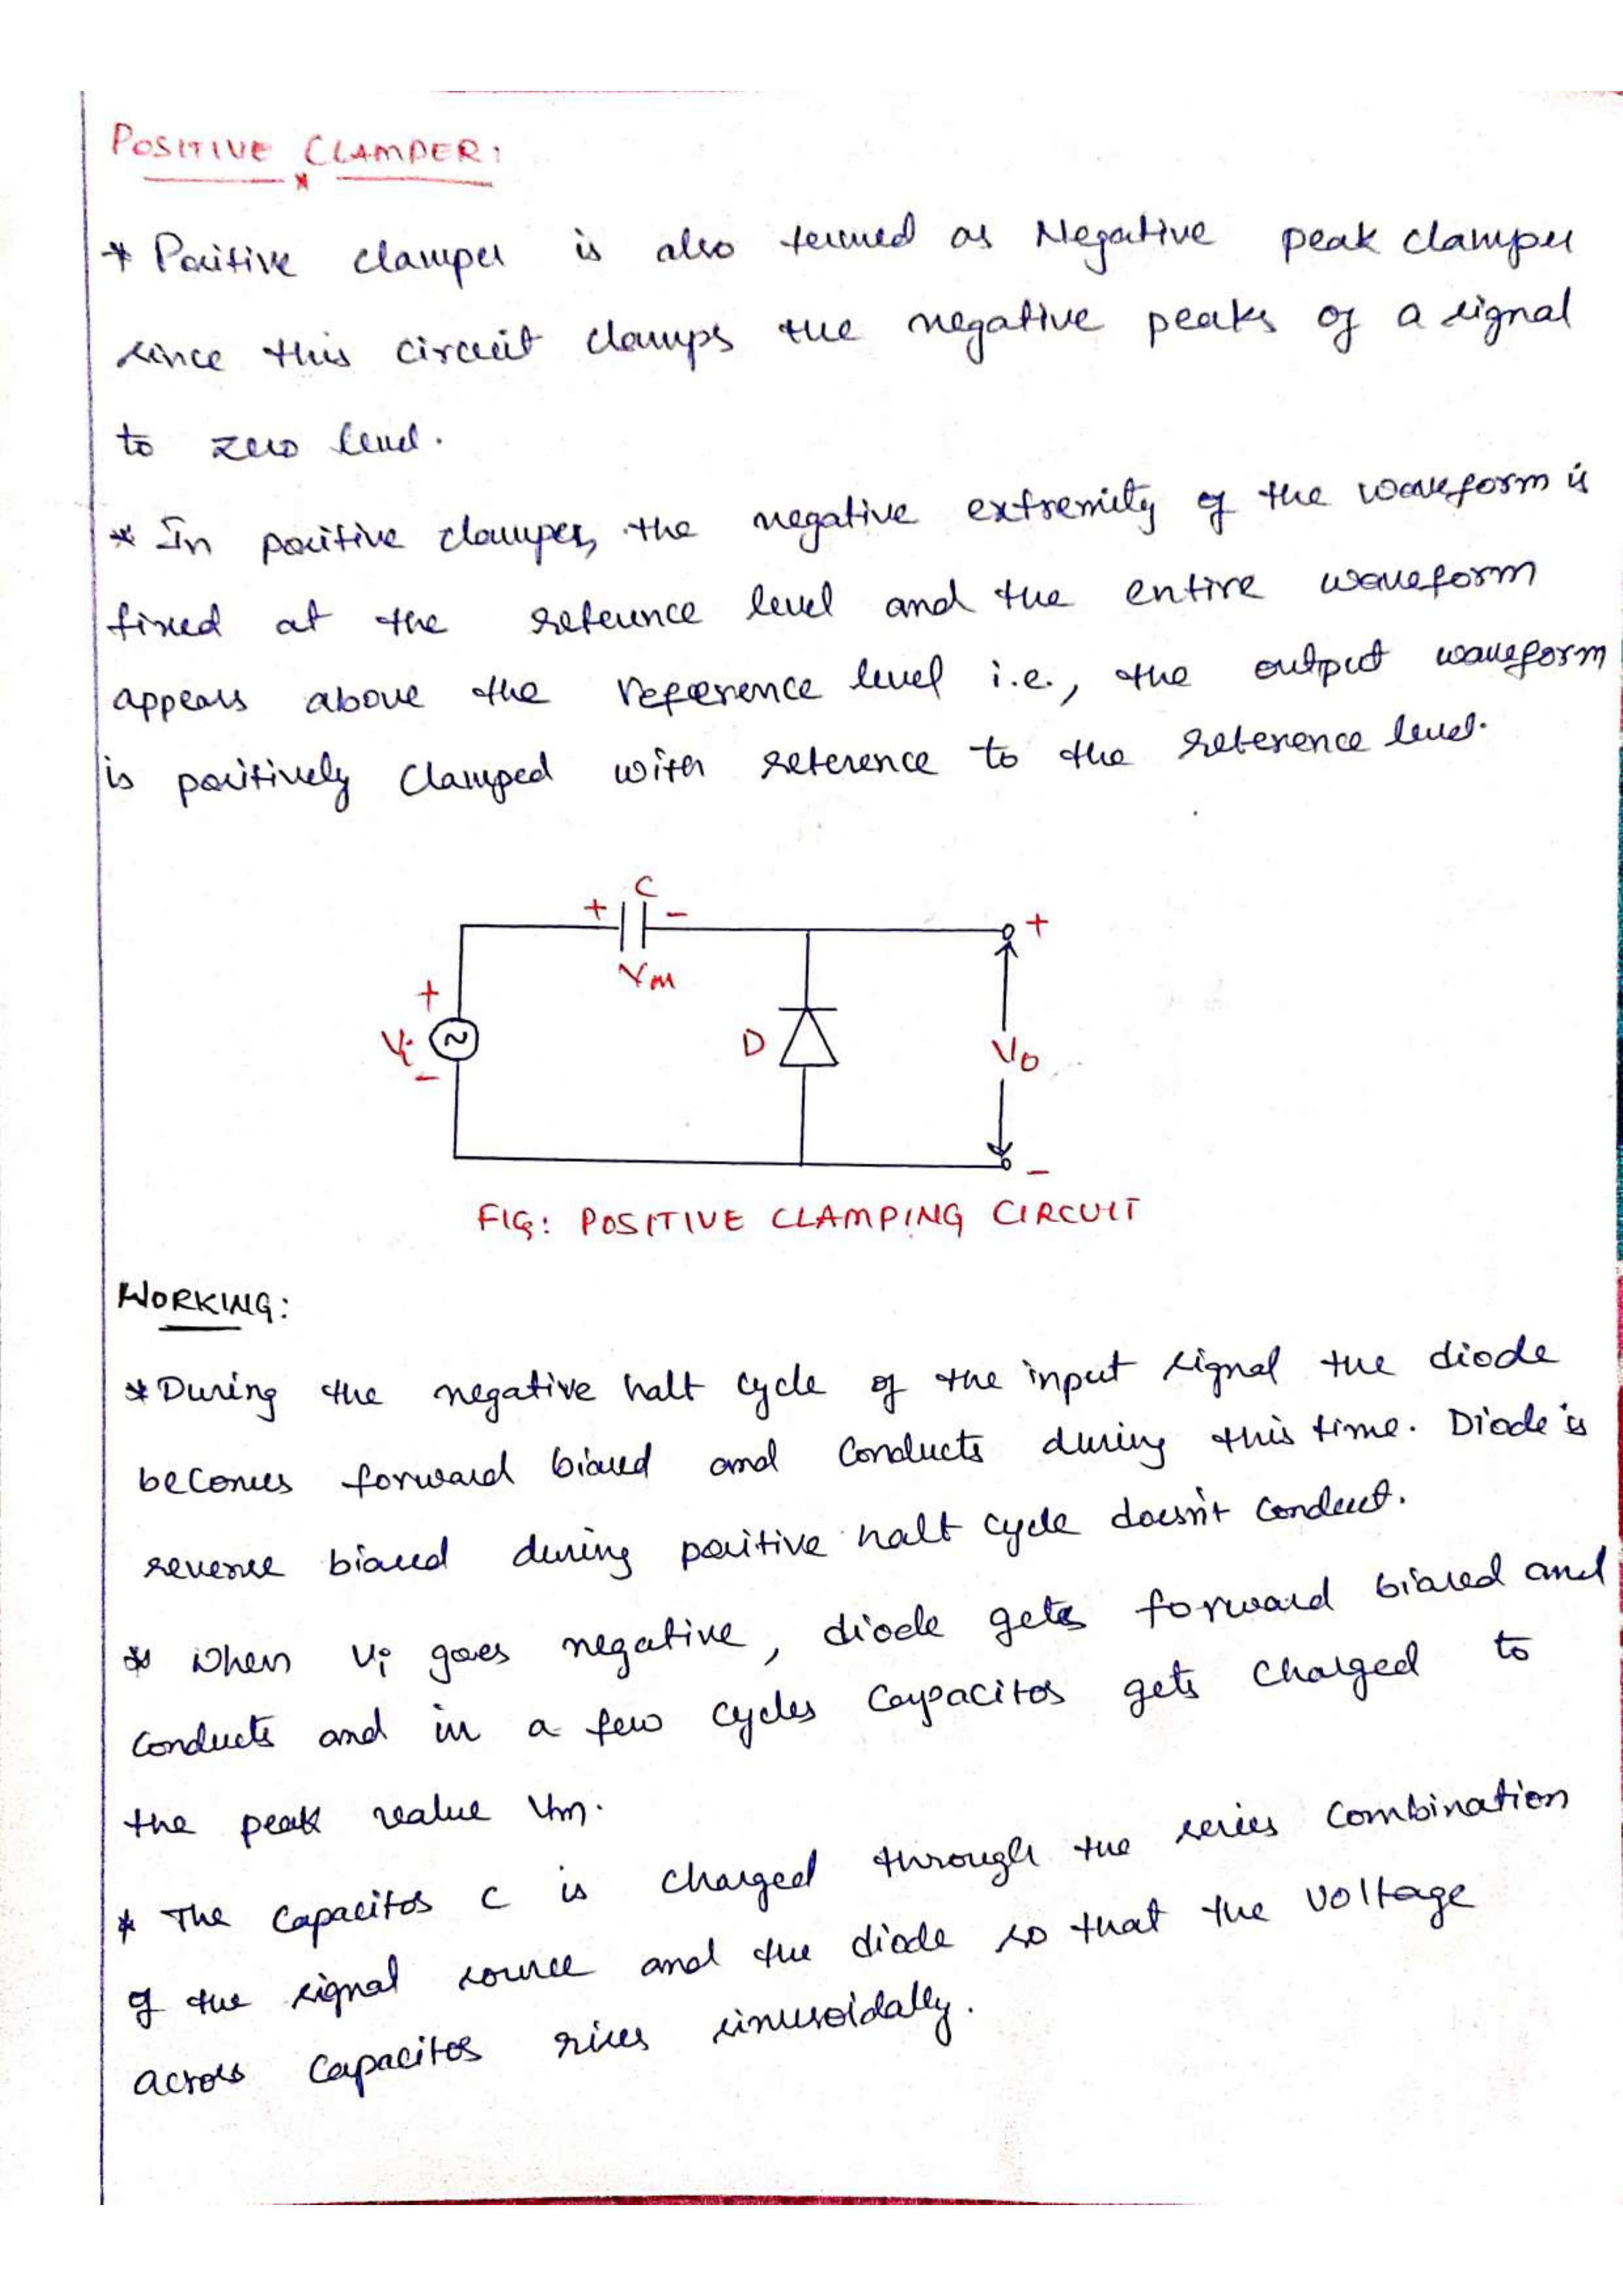 POSITIVE CLAMPER:
* Positive clamper is also termed as Negative peak clamper
since this circuit clamps the negative peaks of a signal
to zero level.
* In positive clamper, the negative extremity of the waveform is
fixed at the reference level and the entire waveform
appears above the reference level i.e., the output waveform
is positively clamped with reference to the reference level.
C
+ -
VM
+
Vi
-
D
+
Vo
-
FIG: POSITIVE CLAMPING CIRCUIT
WORKING:
* During the negative half cycle of the input signal the diode
becomes forward biased and conducts during this time. Diode is
reverse biased during positive half cycle doesn't conduct.
* when Vi goes negative, diode gets forward biased and
conducts and in a few cycles capacitor gets charged to
the peak value Vm.
* The capacitor C is charged through the series combination
of the signal source and the diode so that the voltage
across capacitor rises sinusoidally.